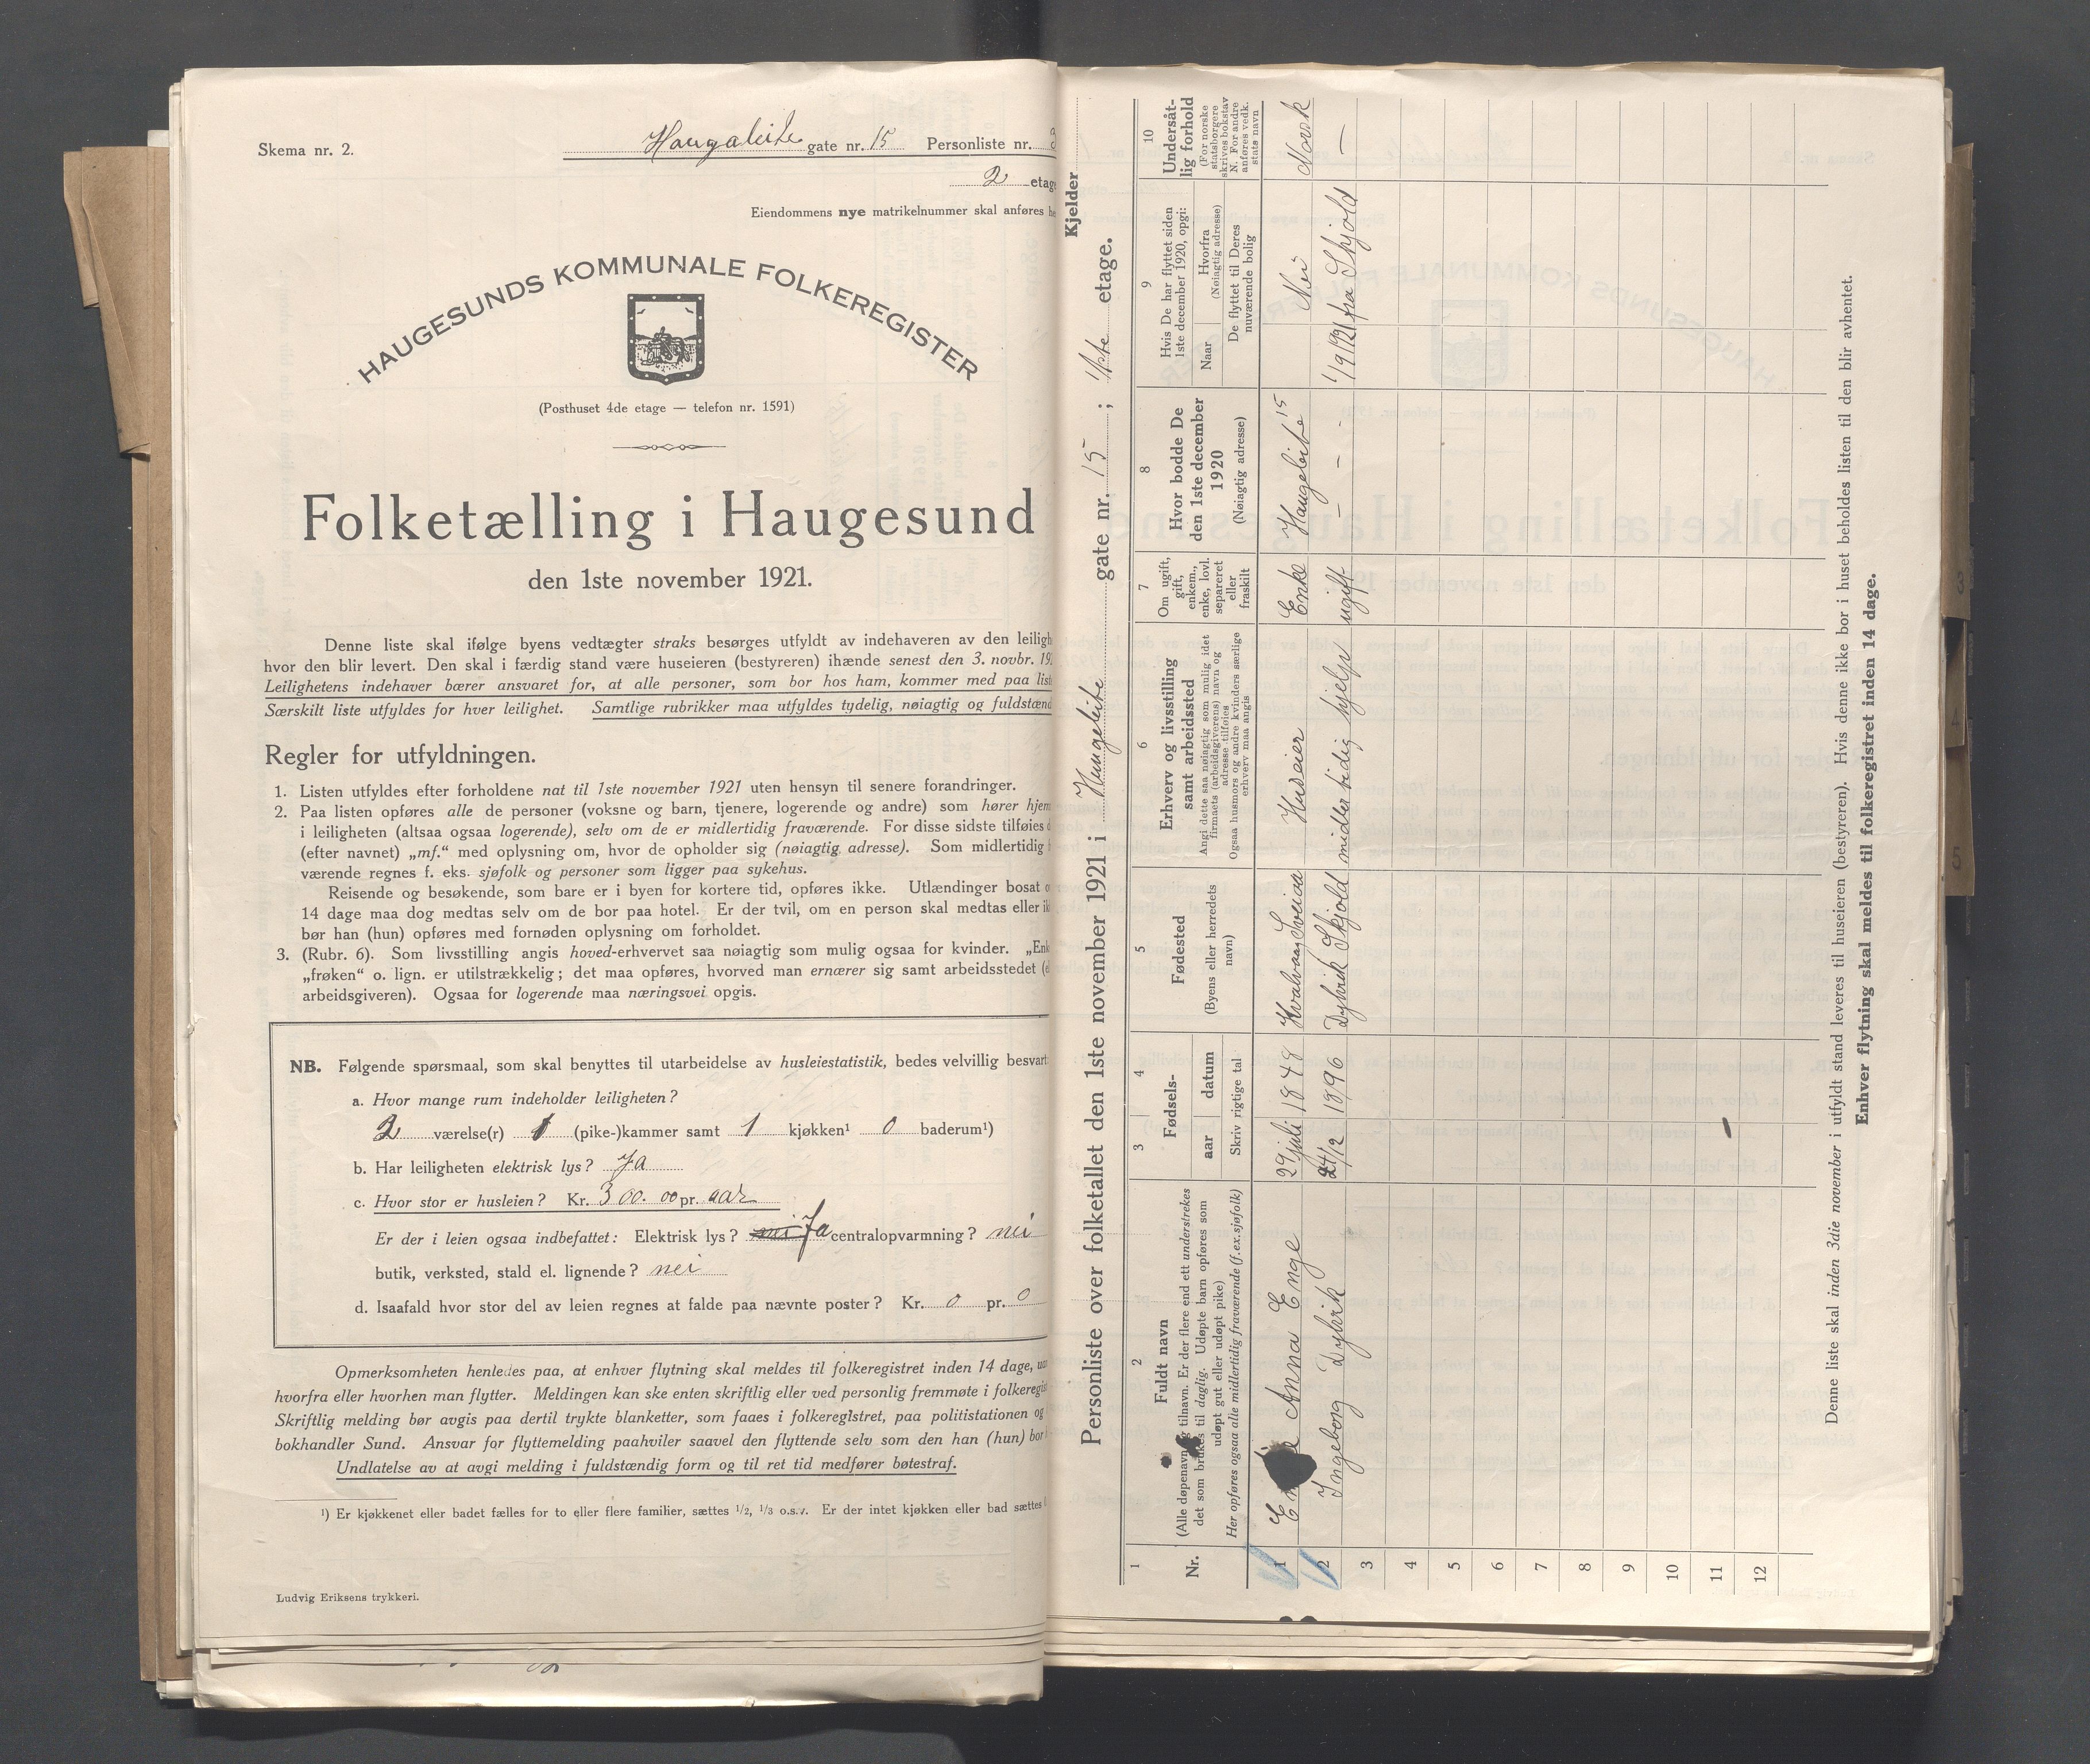 Skema nr. 2.
Haugaleite gate nr. 15 Personliste nr. 3
2 etage
Eiendommens nye matrikelnummer skal anføres he
HAUGESUNDS KOMMUNALE FOLKEREGISTER
(Posthuset 4de etage — telefon nr. 1591)
Folketælling i Haugesund
den 1ste november 1921.
Denne liste skal ifølge byens vedtægter straks besørges utfyldt av indehaveren av den leiligh
hvor den blir levert. Den skal i færdig stand være huseieren (bestyreren) ihænde senest den 3. novbr. 19
Leilighetens indehaver bærer ansvaret for, at alle personer, som bor hos ham, kommer med paa list
Særskilt liste utfyldes for hver leilighet. Samtlige rubrikker maa utfyldes tydelig, nøiagtig og fuldstænd
Regler for utfyldningen.
1. Listen utfyldes efter forholdene nat til 1ste november 1921 uten hensyn til senere forandringer.
2. Paa listen opføres alle de personer (voksne og barn, tjenere, logerende og andre) som hører hjem
i leiligheten (altsaa ogsaa logerende), selv om de er midlertidig fraværende. For disse sidste tilføies
(efter navnet) „mf.“ med oplysning om, hvor de opholder sig (nøiagtig adresse). Som midlertidig
værende regnes f. eks. sjøfolk og personer som ligger paa sykehus.
Reisende og besøkende, som bare er i byen for kortere tid, opføres ikke. Utlændinger bosat o
14 dage maa dog medtas selv om de bor paa hotel. Er der tvil, om en person skal medtas eller ik
bør han (hun) opføres med fornøden oplysning om forholdet.
3. (Rubr. 6). Som livsstilling angis hoved-erhvervet saa nøiagtig som mulig ogsaa for kvinder. „Enk
„frøken“ o. lign. er utilstrækkelig; det maa opføres, hvorved man ernærer sig samt arbeidsstedet (e
arbeidsgiveren). Ogsaa for logerende maa næringsvei opgis.
NB. Følgende spørsmaal, som skal benyttes til utarbeidelse av husleiestatistik, bedes velvillig besvart:
a. Hvor mange rum indeholder leiligheten?
2 værelse(r) 1 (pike-)kammer samt 1 kjøkken¹ 0 baderum¹)
b. Har leiligheten elektrisk lys? Ja
c. Hvor stor er husleien? Kr. 300.00 pr. aar
Er der i leien ogsaa indbefattet: Elektrisk lys? nei Ja centralopvarmning? nei
butik, verksted, stald el. lignende? nei
d. Isaafald hvor stor del av leien regnes at falde paa nævnte poster? Kr. 0 pr. 0
Opmerksomheten henledes paa, at enhver flytning skal meldes til folkeregistret inden 14 dage,
hvorfra eller hvorhen man flytter. Meldingen kan ske enten skriftlig eller ved personlig fremmøte i folkeregist
Skriftlig melding bør avgis paa dertil trykte blanketter, som faaes i folkeregistret, paa politistationen og
bokhandler Sund. Ansvar for flyttemelding paahviler saavel den flyttende selv som den han (hun) bor
Undlatelse av at avgi melding i fuldstændig form og til ret tid medfører bøtestraf.
¹) Er kjøkkenet eller badet fælles for to eller flere familier, sættes 1/2, 1/3 o.s.v. Er der intet kjøkken eller bad sættes
Ludvig Eriksens trykkeri.
Kjelder
Personliste over folketallet den 1ste november 1921 i Haugeleite gate nr. 15; 1ste etage.
1 2 3 4 5 6 7 8 9 10
Nr.
Fuldt navn
(Alle døpenavn og tilnavn. Er der flere end ett understrekes
det som brukes til daglig. Udøpte barn opføres som
udøpt gut eller udøpt pike)
Her opføres ogsaa alle midlertidig fraværende (f.ex. sjøfolk)
Fødsels-
aar datum
Skriv rigtige tal
Fødested
(Byens eller herredets
navn)
Erhverv og livsstilling
samt arbeidssted
Angi dette saa nøiagtig som mulig idet
firmaets (arbeidsgiverens) navn og
adresse tilføies
Ogsaa husmors og andre kvinders særlige
erhverv maa angis
Om ugift,
gift,
enkem.,
enke, lovl.
separeret
eller
fraskilt
Hvor bodde De
den 1ste december
1920
(Nøiagtig adresse)
Hvis De har flyttet siden
1ste december 1920, opgi:
Naar
Hvorfra
(Nøiagtig adresse)
De flyttet til Deres
nuværende bolig
Undersåt-
lig forhold
(For norske
statsborgere
skrives bokstav
N. For andre
anføres vedk.
stats navn
1 Anna Enge 29 juli 1848 Sveiaa Huseier Enke Haugeleite 15 Nei Norsk
2 Ingeborg Dybvik 24/2 1896 Dybvik Skjold midlertidig hjelp ugift — — - 1/9 1921 fra Skjold —
3
4
5
6
7
8
9
10
11
12
Denne liste skal inden 3die november i utfyldt stand leveres til huseieren (bestyreren). Hvis denne ikke bor i huset beholdes listen til den blir avhentet.
Enhver flytning skal meldes til folkeregistret inden 14 dage.